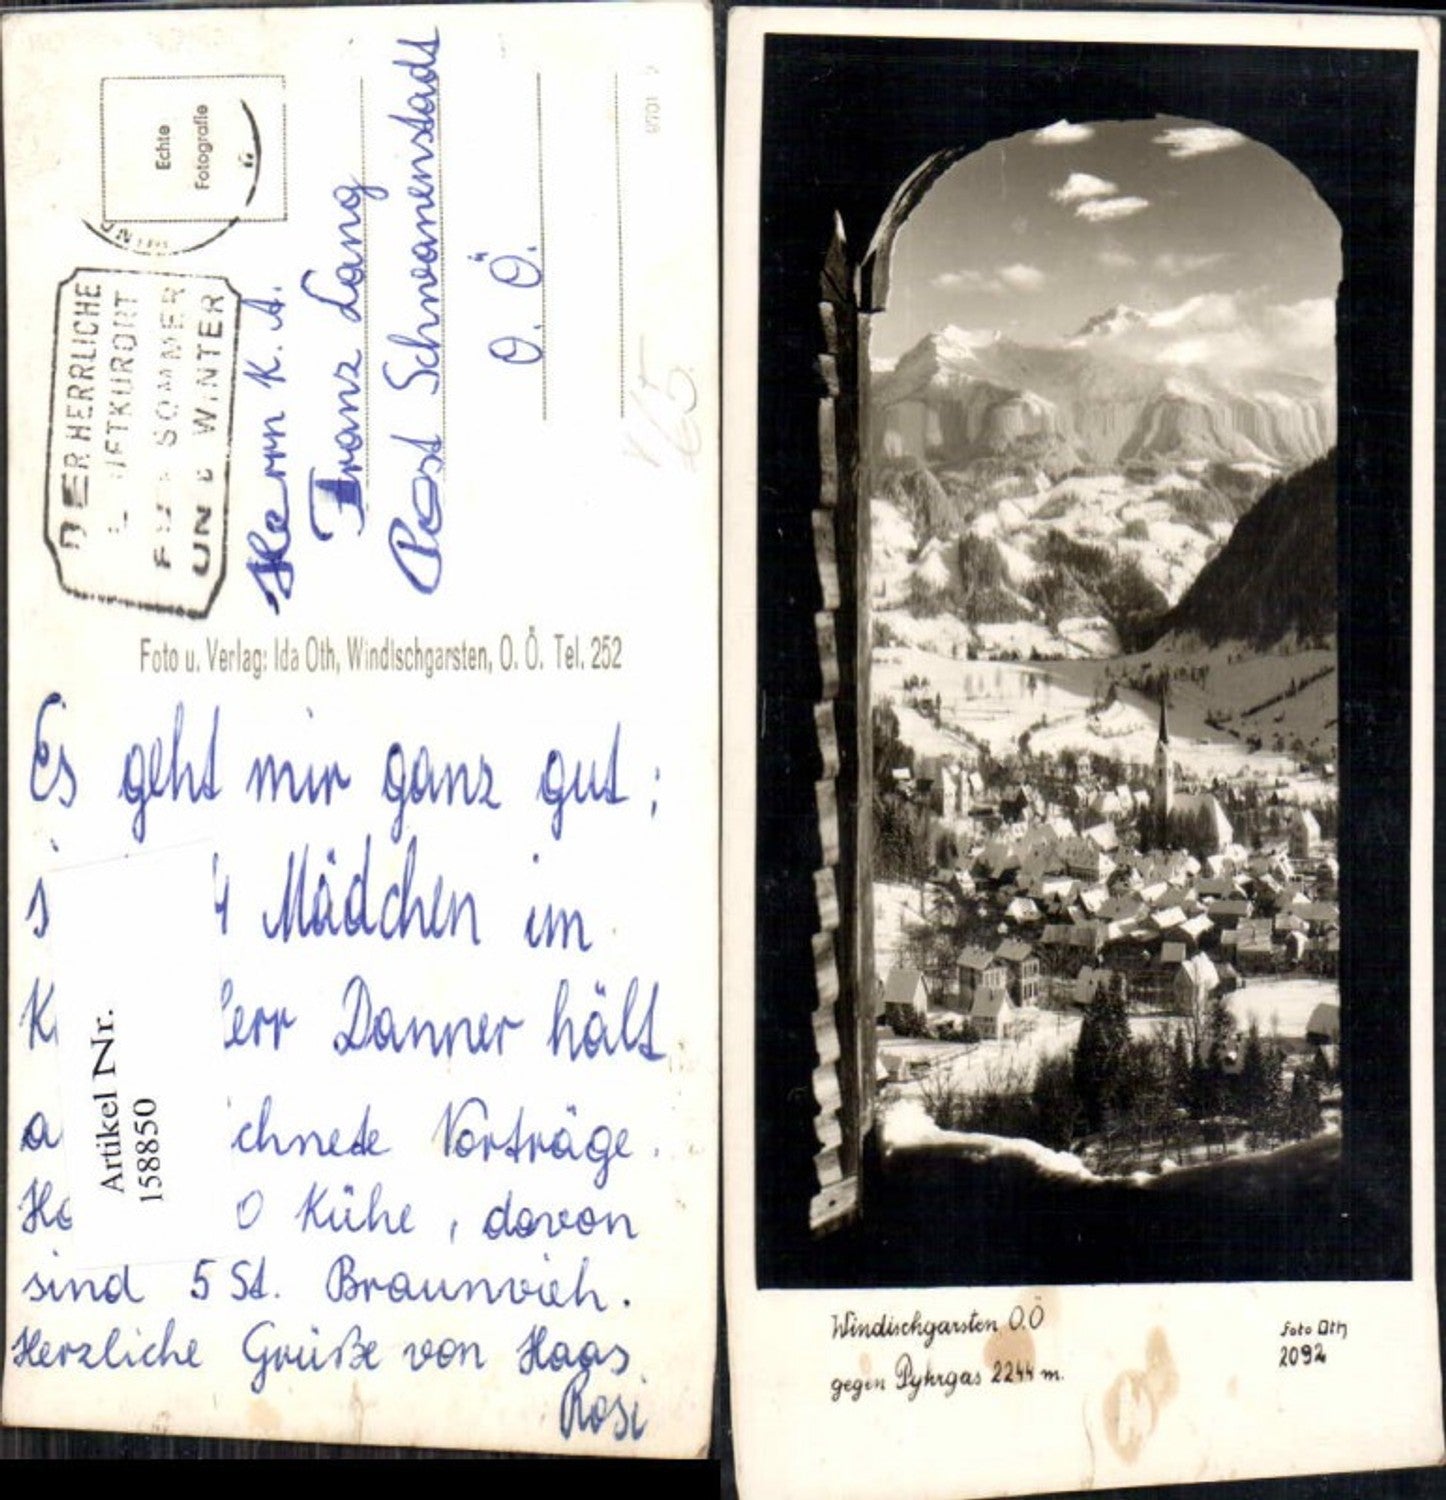 Echte
Fotografie
WIND
Ö
DER HERRLICHE
LUFTKURORT
FÜR SOMMER
UND WINTER
Herrn K. A.
Franz Lang
Post Schwanenstadt
O. Ö.
Foto u. Verlag: Ida Oth, Windischgarsten, O. Ö. Tel. 252
Es geht mir ganz gut;
4 Mädchen im
Herr Danner hält
Vorträge.
0 Kühe, davon
sind 5 St. Braunvieh.
Herzliche Grüße von Haas
Rosi
Artikel Nr.
158850
Windischgarsten O.Ö
gegen Pyhrgas 2244 m.
Foto Oth
2092